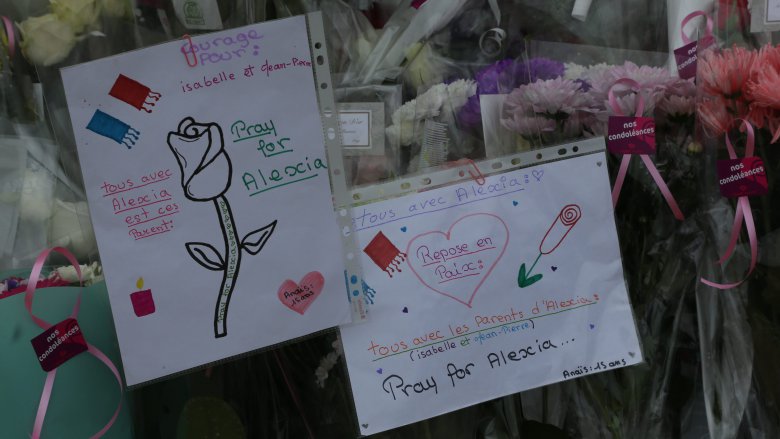 courage
pour:
isabelle et Jean-Pierre
Pray
for
Alexia
tous avec
Alexia
est ces
Parent:
Anaïs:
15 ans
tous avec Alexia:
Repose en
Paix:
tous avec les Parents d'Alexia:
(isabelle et Jean-Pierre)
Pray for Alexia...
Anaïs: 15 ans
nos
condoléances
nos
condoléances
nos
condoléances
nos
condoléances